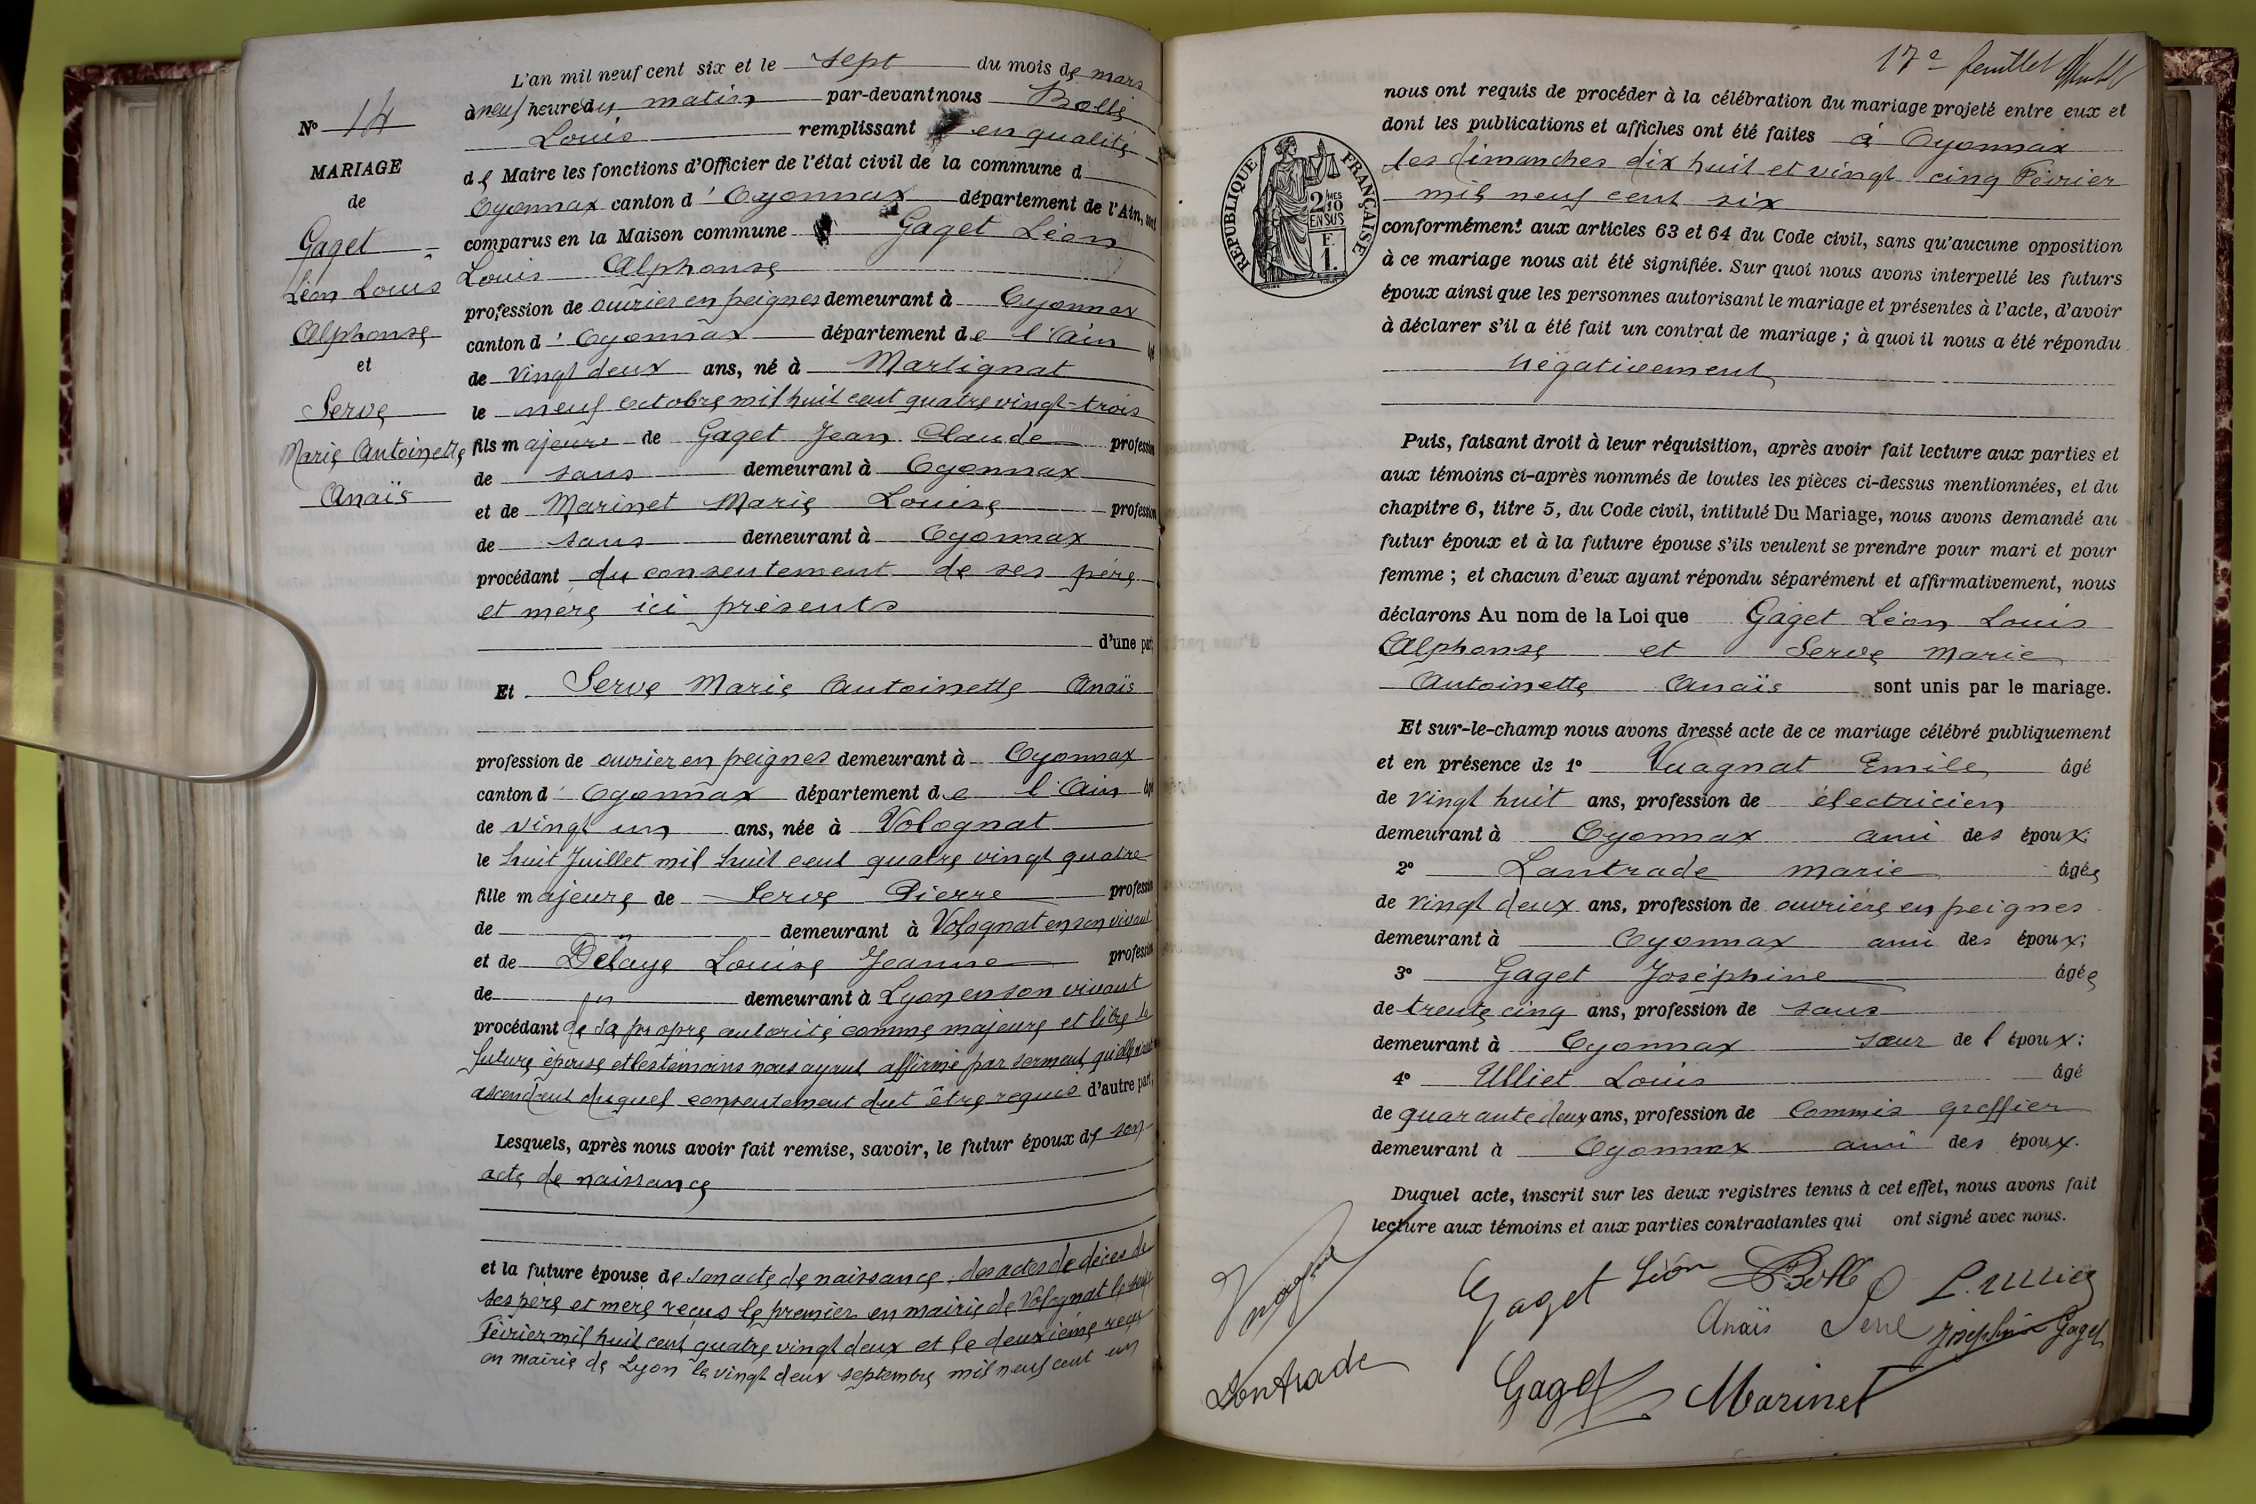 L'an mil neuf cent six et le sept du mois de mars
à neuf heures du matin par-devant nous Bollé
Louis remplissant en qualité
de Maire les fonctions d'Officier de l'état civil de la commune d
Oyonnax canton d'Oyonnax département de l'Ain, sont
comparus en la Maison commune Gaget Léon
Louis Alphonse
profession de ouvrier en peignes demeurant à Oyonnax
canton d'Oyonnax département de l'Ain âgé
de vingt deux ans, né à Martignat
le neuf octobre mil huit cent quatre vingt-trois
fils majeur de Gaget Jean Claude profession
de sans demeurant à Oyonnax
et de Marinet Marie Louise profession
de sans demeurant à Oyonnax
procédant du consentement de ses père
et mère ici présents
d'une part,
Et Serve Marie Antoinette Anaïs
profession de ouvrier en peignes demeurant à Oyonnax
canton d'Oyonnax département de l'Ain âgé
de vingt un ans, née à Volognat
le huit Juillet mil huit cent quatre vingt quatre
fille majeure de Serve Pierre profession
de demeurant à Volognat en son vivant
et de Delaye Louise Jeanne profession
de demeurant à Lyon en son vivant
procédant de sa propre autorité comme majeure et libre la
future épouse et les témoins nous ayant affirmé par serment qu'elle n'a
ascendant duquel consentement dut être requis d'autre part,
Lesquels, après nous avoir fait remise, savoir, le futur époux de son
acte de naissance
et la future épouse de son acte de naissance, des actes de décès de
ses père et mère reçus le premier en mairie de Volognat le huit
Février mil huit cent quatre vingt deux et le deuxième reçu
en mairie de Lyon le vingt deux septembre mil neuf cent un
No 14
MARIAGE
de
Gaget
Léon Louis
Alphonse
et
Serve
Marie Antoinette
Anaïs
17e feuillet
nous ont requis de procéder à la célébration du mariage projeté entre eux et
dont les publications et affiches ont été faites à Oyonnax
les dimanches dix huit et vingt cinq Février
mil neuf cent six
conformément aux articles 63 et 64 du Code civil, sans qu'aucune opposition
à ce mariage nous ait été signifiée. Sur quoi nous avons interpellé les futurs
époux ainsi que les personnes autorisant le mariage et présentes à l'acte, d'avoir
à déclarer s'il a été fait un contrat de mariage ; à quoi il nous a été répondu
négativement
Puis, faisant droit à leur réquisition, après avoir fait lecture aux parties et
aux témoins ci-après nommés de toutes les pièces ci-dessus mentionnées, et du
chapitre 6, titre 5, du Code civil, intitulé Du Mariage, nous avons demandé au
futur époux et à la future épouse s'ils veulent se prendre pour mari et pour
femme ; et chacun d'eux ayant répondu séparément et affirmativement, nous
déclarons Au nom de la Loi que Gaget Léon Louis
Alphonse et Serve Marie
Antoinette Anaïs sont unis par le mariage.
Et sur-le-champ nous avons dressé acte de ce mariage célébré publiquement
et en présence de 1° Vuagnat Emile âgé
de vingt huit ans, profession de électricien
demeurant à Oyonnax ami des époux;
2° Lantrade Marie âgée
de vingt deux ans, profession de ouvrière en peignes
demeurant à Oyonnax ami des époux;
3° Gaget Joséphine âgée
de trente cinq ans, profession de sans
demeurant à Oyonnax sœur de l'époux;
4° Ulliet Louis âgé
de quarante deux ans, profession de Commis greffier
demeurant à Oyonnax ami des époux.
Duquel acte, inscrit sur les deux registres tenus à cet effet, nous avons fait
lecture aux témoins et aux parties contractantes qui ont signé avec nous.
RÉPUBLIQUE FRANÇAISE
2 MES 10
EN SUS
F.
1.
Vuagnat
Gaget Léon Bollé L. Ulliet
Anaïs Serve Joséphine Gaget
Lantrade
Gaget Marinet